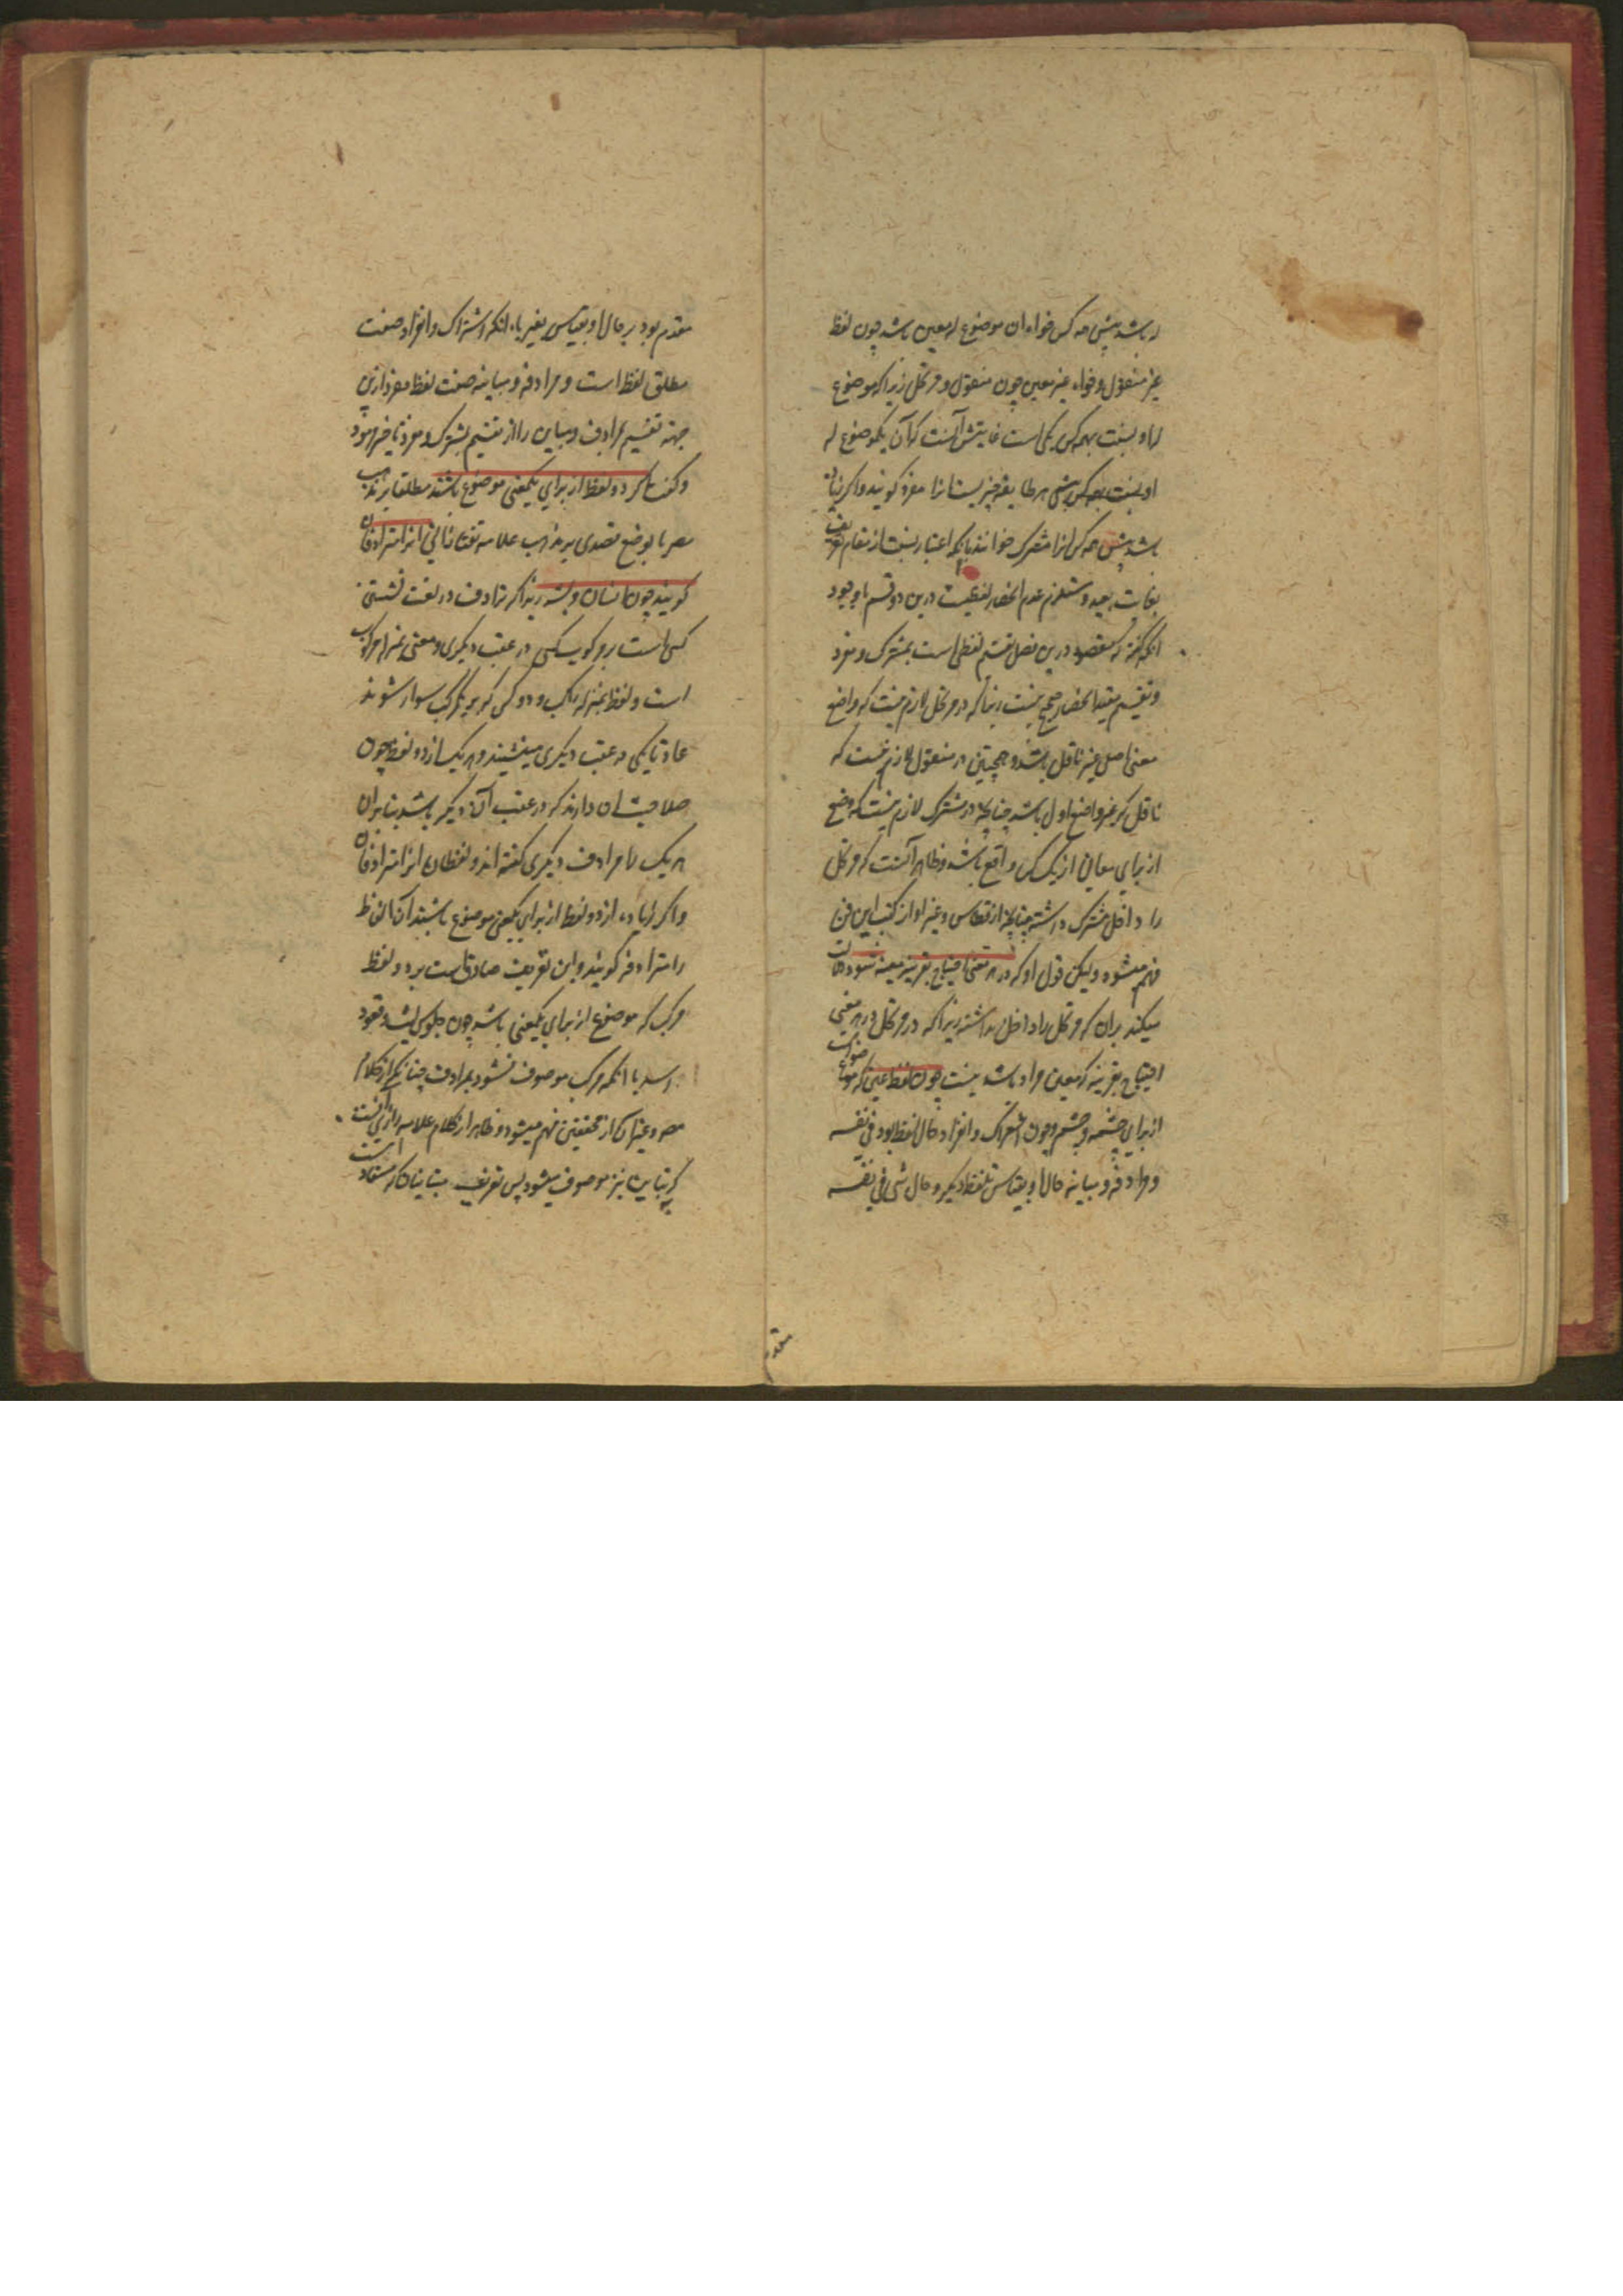 باشد پیش همه کس خواه ان موضوع له معین باشد چون لفظ
غیر منقول و خواه غیر معین چون منقول و مرتجل زیرا که موضوع
له او بنسبت بهمه کس یکی است غایتش آنست که آن یک موضوع له
او بنسبت بهر کس پیش هر طایفه چیزیست انرا مفرد کویند و اکر زیاده
باشد پیش همه کس انرا مشترک خوانند با انکه اعتبار نسبت از مقام تعریف
بغایت بعید و مستلزم عدم انحصار لفظیست درین دو قسم با وجود
انکه گفته که مقصود درین فصل تقسیم لفظ است بمشترک و مفرد
و تقسیم بیقید انحصار صحیح نیست زیرا که در مرتجل لازم نیست که واضع
معنی اصلی غیر ناقل باشد و همچنین در منقول لازم نیست که
ناقل غیر واضع اول باشد چنانچه در مشترک لازم نیست که وضع
از برای معانی از یک کس واقع باشد و ظاهر آنست که مرتجل
را داخل مشترک داشته چنانچه از قسطاس و غیر او از کتب این فن
فهم میشود ولیکن قول او که در هر معنی احتیاج بقرینه معینه شود دلالت
میکند بران که مرتجل را داخل نداشته زیرا که در مرتجل در هر معنی
احتیاج بقرینه که معین مراد باشد نیست چون لفظ عین که موضوعست
از برای چشمه و چشم و چون اشتراک و انفراد حال لفظ بود فی نفسه
و مرادفه و مباینه حال او بقیاس بلفظ دیکر و حال شی فی نفسه
مقدم
مقدم بود بر حال او بقیاس بغیر با انکه اشتراک و انفراد صفت
مطلق لفظ است و مرادفه و مباینه صفت لفظ مفرد ازین
جهة تقسیم بمرادف و مباین را از تقسیم بمشترک و مفرد تاخیر نمود
و کفت اکر دو لفظ از برای یکمعنی موضوع باشند مطلقا بر مذهب
مصر یا بوضع قصدی بر مذهب علامه تفتازانی انرا مترادفان
کویند چون انسان و بشر زیرا که ترادف در لغت نشستن
کسی است بر یک مرکب کسی در عقب دیکری و معنی بمنزله مرکوب
است و لفظ بمنزله راکب و دو کس که بر یک مرکب سوار شوند
عادتا یکی در عقب دیکری مینشیند و هر یک از دو لفظ چون
صلاحیت ان دارند که در عقب آن دیکر باشد بنا بران
هر یک را مرادف دیکری کفته اند و لفظان را انرا مترادفان
و اکر زیاده از دو لفظ از برای یکمعنی موضوع باشند آن الفاظ
را مترادفه کویند و این تعریف صادق است بر دو لفظ
مرکب که موضوع از برای یکمعنی باشد چون جلوس لیث و قعود
اسد با انکه مرکب موصوف نشود بمرادفت چنانکه از کلام
مصر و غیر ان از محققین فهم میشود و ظاهر از کلام علامه رازی آنست
که تباین نیز موصوف میشود پس تعریف متباینان که مستفاد است